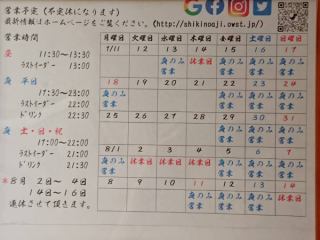 営業予定（不定休になります）
最新情報はホームページをご覧ください。(http://shikinoaji.owst.jp/)
営業時間
昼 11:30～13:30
ラストオーダー 13:00
夜 平日
17:00～22:00
ラストオーダー 21:00
ドリンク 21:30
夜 土・日・祝
17:00～22:00
ラストオーダー 21:00
ドリンク 21:30
※8月 2日～ 4日
14日～16日
連休させて頂きます。
月曜日 火曜日 水曜日 木曜日 金曜日 土曜日 日曜日
12 13 14 15 16 17
休業日 夜のみ営業 夜のみ営業 夜のみ営業
18 19 20 21 22 23 24
夜のみ営業 夜のみ営業 夜のみ営業 夜のみ営業
25 26 27 28 29 30 31
夜のみ営業 夜のみ営業 夜のみ営業
8/1 2 3 4 5 6 7
夜のみ営業 休業日 休業日 休業日 夜のみ営業 夜のみ営業 夜のみ営業
8 9 10 11 12 13 14
夜のみ営業 夜のみ営業 夜のみ営業 休業日